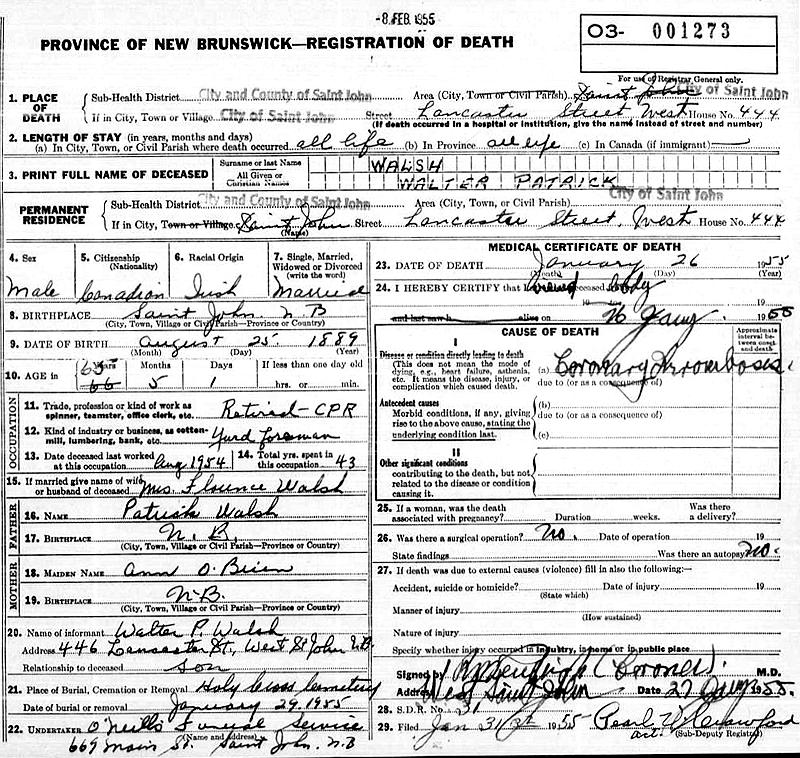 -8 FEB. 1955
PROVINCE OF NEW BRUNSWICK—REGISTRATION OF DEATH
03- 001273
For use of Registrar General only.
1. PLACE OF DEATH
Sub-Health District City and County of Saint John Area (City, Town or Civil Parish) Saint John City of Saint John
If in City, Town or Village City of Saint John Street Lancaster Street West House No. 444
(If death occurred in a hospital or institution, give the name instead of street and number)
2. LENGTH OF STAY (in years, months and days)
(a) In City, Town, or Civil Parish where death occurred all life (b) In Province all life (c) In Canada (if immigrant)
3. PRINT FULL NAME OF DECEASED
Surname or last Name WALSH
All Given or Christian Names WALTER PATRICK
PERMANENT RESIDENCE
Sub-Health District City and County of Saint John Area (City, Town, or Civil Parish) City of Saint John
If in City, Town or Village Saint John Street Lancaster Street, West House No. 444
(Name)
4. Sex Male
5. Citizenship (Nationality) Canadian
6. Racial Origin Irish
7. Single, Married, Widowed or Divorced (write the word) Married
8. BIRTHPLACE Saint John N B
(City, Town, Village or Civil Parish—Province or Country)
9. DATE OF BIRTH August 25 1889
(Month) (Day) (Year)
10. AGE in 65 Years 66 Months 5 Days 1 If less than one day old hrs. or min.
OCCUPATION
11. Trade, profession or kind of work as spinner, teamster, office clerk, etc. Retired - CPR
12. Kind of industry or business, as cotton-mill, lumbering, bank, etc. Yard Foreman
13. Date deceased last worked at this occupation Aug 1954
14. Total yrs. spent in this occupation 43
15. If married give name of wife or husband of deceased Mrs. Florence Walsh
FATHER
16. NAME Patrick Walsh
17. BIRTHPLACE N. B.
(City, Town, Village or Civil Parish—Province or Country)
MOTHER
18. MAIDEN NAME Ann O'Brien
19. BIRTHPLACE N-B.
(City, Town, Village or Civil Parish—Province or Country)
20. Name of informant Walter P. Walsh
Address 446 Lancaster St, West St John N.B.
Relationship to deceased Son
21. Place of Burial, Cremation or Removal Holy Cross Cemetery
Date of burial or removal January 29, 1955
22. UNDERTAKER O'Neill's Funeral Service
(Name and Address)
669 Main St. Saint John, N.B
MEDICAL CERTIFICATE OF DEATH
23. DATE OF DEATH January 26 1955
(Month) (Day) (Year)
24. I HEREBY CERTIFY that I viewed body
to 19
and last saw h alive on 26 Jany 1955
CAUSE OF DEATH
Approximate interval between onset and death
I
Disease or condition directly leading to death
(This does not mean the mode of dying, e.g., heart failure, asthenia, etc. It means the disease, injury, or complication which caused death.
(a) Coronary Thrombosis
due to (or as a consequence of)
Antecedent causes
Morbid conditions, if any, giving rise to the above cause, stating the underlying condition last.
(b)
due to (or as a consequence of)
(c)
II
Other significant conditions
contributing to the death, but not related to the disease or condition causing it.
25. If a woman, was the death associated with pregnancy? Duration weeks. Was there a delivery?
26. Was there a surgical operation? No. Date of operation 19
State findings Was there an autopsy? No.
27. If death was due to external causes (violence) fill in also the following:—
Accident, suicide or homicide? Date of injury 19
(State which)
Manner of injury
(How sustained)
Nature of injury
Specify whether injury occurred in industry, in home or in public place
Signed by (Coroner). M.D.
Address West Saint John Date 27 Jany 1955.
28. S.D.R. No. 31
29. Filed Jan 31 1955 Pearl W Crawford
act. (Sub-Deputy Registrar)